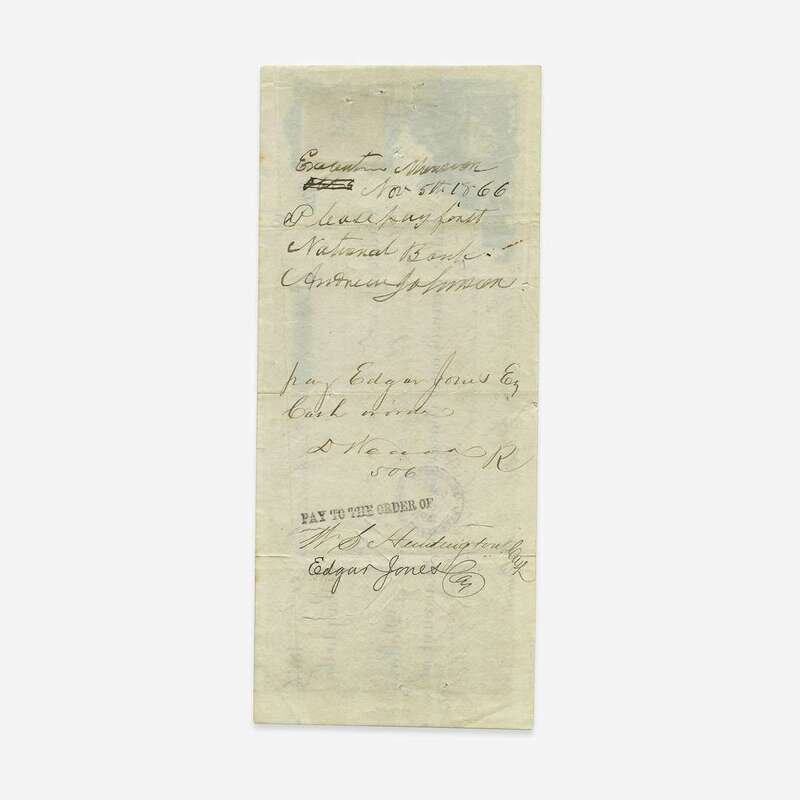 Executive Mansion
Nov 5th 1866
Please pay first
National Bank
Andrew Johnson
pay Edgar Jones Esq
Cash or order
506
PAY TO THE ORDER OF
W S Huntington Cash
Edgar Jones Cas